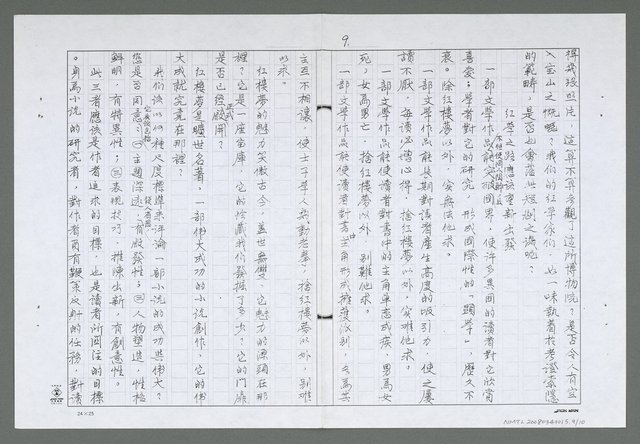 9.
得幾張照片，這算不算參觀了這所博物院？是否令人有空
入寶山之慨呢？我們的紅學家們，如一味執着於考證索隱
的範疇，是否也會落此短淺之議呢？
紅學之路應該重新出發
一部文學作品能突破國界，使許多異國的讀者對它欣賞
不但使國人
喜愛；學者對它的研究，形成國際性的「顯學」，歷久不
衰。除紅樓夢以外，實無法他求。
一部文學作品能長期對讀者產生高度的吸引力，使之屢
讀不厭，每讀必增心得，捨紅樓夢以外，實難他求。
一部文學作品能使讀者對書中的主角單戀成疾，男為女
死，女為男亡，捨紅樓夢以外，別難他求。
一部文學作品能使讀者對書中主角形成擁薛派別，
互不相讓，使士子學人無動老拳，捨紅樓夢以外，別難
以求。
紅樓夢的魅力笑傲古今，蓋世無雙，它魅力的源頭在那
裡？它是一座寶庫，它的珍藏我們發掘了多少？它的門扉
是否已經正式啟開？
紅樓夢是曠世名著，一部偉大成功的小說創作，它的偉
大成就究竟在那裡？
我們該以何種尺度標準來評論一部小說的成功與偉大？
您是否同意：㈠主題深遠，有啟發性；㈡人物塑造，性格
鮮明，有特異性；㈢表現技巧，推陳出新，有創意性。
此三者應該是作者追求的目標，也是讀者所關注的目標
。身為小說的研究者，對作者負有鞭策反射的任務，對讀
24×25
NMTL20080340015.9/10